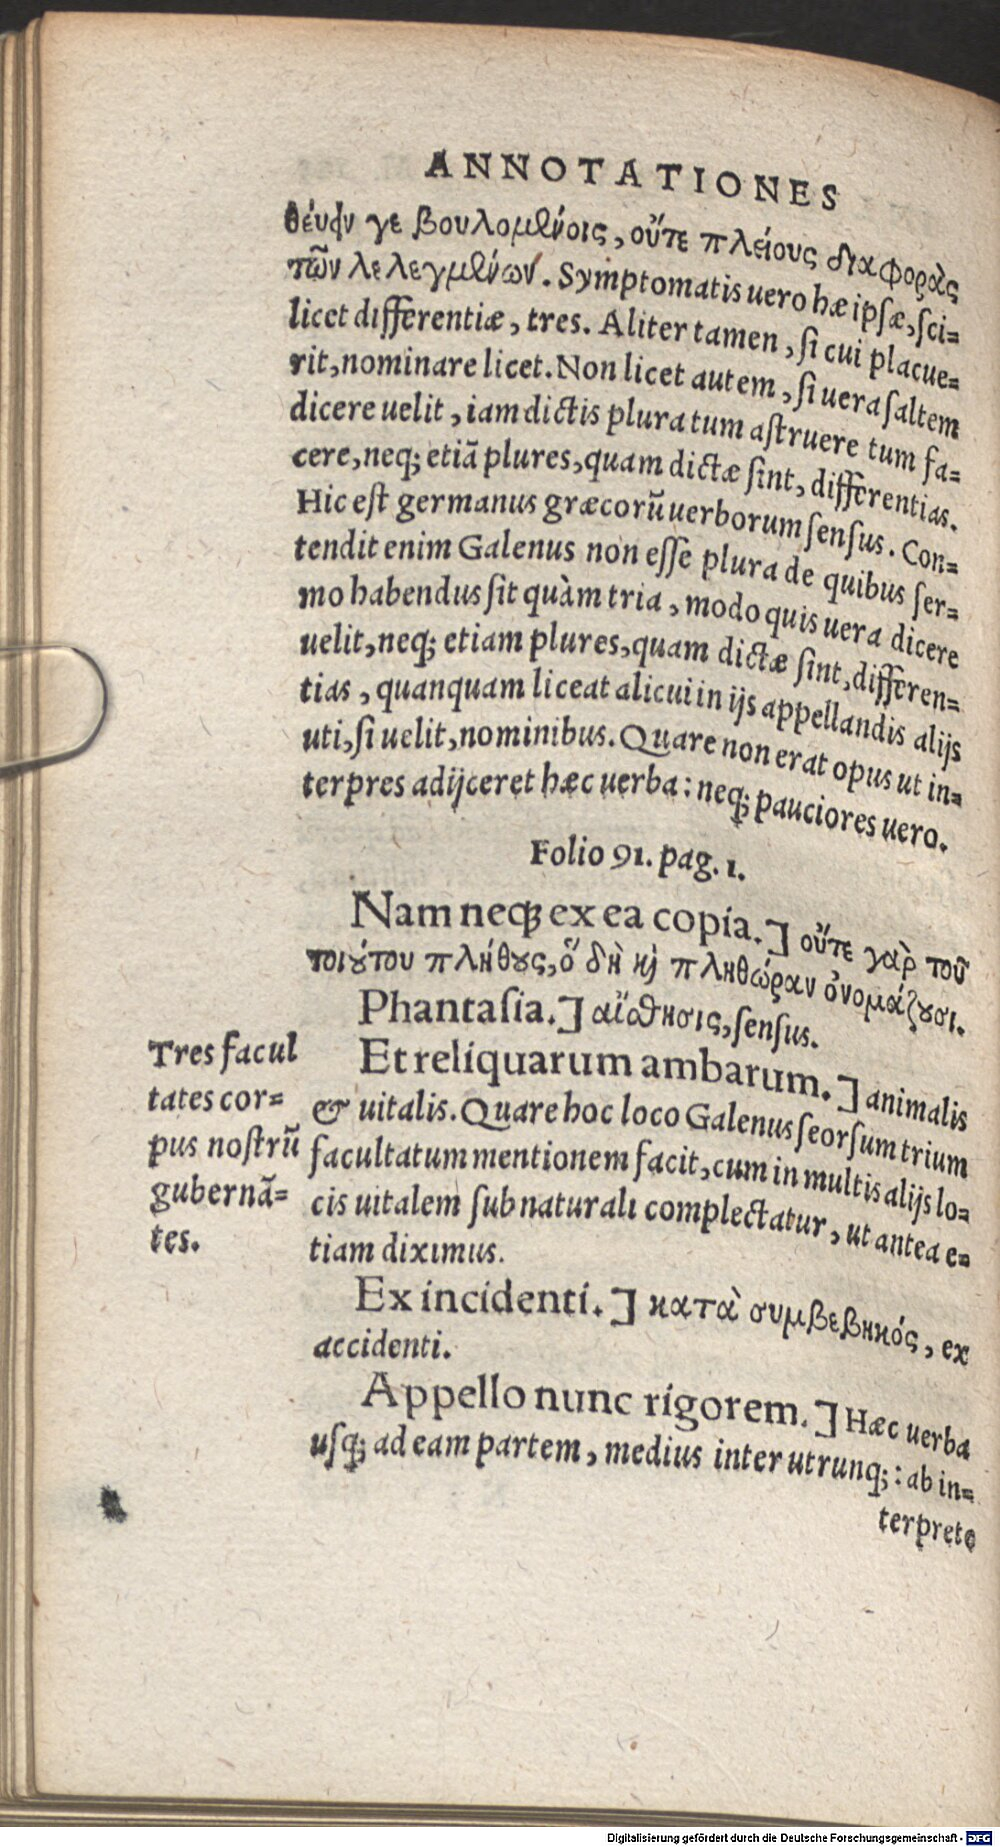 ANNOTATIONES
θεύειν γε βουλομένοις, οὔτε πλείους διαφορὰς
τῶν λελεγμένων. Symptomatis uero hæ ipsæ, sci=
licet differentiæ, tres. Aliter tamen, si cui placue=
rit, nominare licet. Non licet autem, si uera saltem
dicere uelit, iam dictis plura tum astruere tum fa=
cere, neq; etiã plures, quam dictæ sint, differentias.
Hic est germanus græcorũ uerborum sensus. Con=
tendit enim Galenus non esse plura de quibus ser=
mo habendus sit quàm tria, modo quis uera dicere
uelit, neq; etiam plures, quam dictæ sint, differen=
tias, quanquam liceat alicui in ijs appellandis alijs
uti, si uelit, nominibus. Quare non erat opus ut in=
terpres adijceret hæc uerba: neq; pauciores uero.
Folio 91. pag. 1.
Nam neq; ex ea copia.] οὔτε γὰρ τοῦ
τοιούτου πλήθους, ὃ δὴ καὶ πληθώραν ὀνομάζουσι.
Phantasia.] αἴσθησις, sensus.
Et reliquarum ambarum.] animalis
& uitalis. Quare hoc loco Galenus seorsum trium
facultatum mentionem facit, cum in multis alijs lo=
cis uitalem sub naturali complectatur, ut antea e=
tiam diximus.
Tres facul
tates cor=
pus nostrũ
gubernã=
tes.
Ex incidenti.] κατὰ συμβεβηκός, ex
accidenti.
Appello nunc rigorem.] Hæc uerba
usq; ad eam partem, medius inter utrunq;: ab in=
terprete
Digitalisierung gefördert durch die Deutsche Forschungsgemeinschaft - DFG